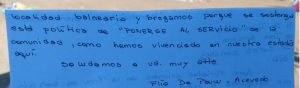 localidad balnearia y bregamos porque se sostenga
esta política de "PONERSE AL SERVICIO" de la
comunidad, como hemos vivenciado en nuestra estadía
aquí.
Saludamos a Ud. muy atte.
Acevedo